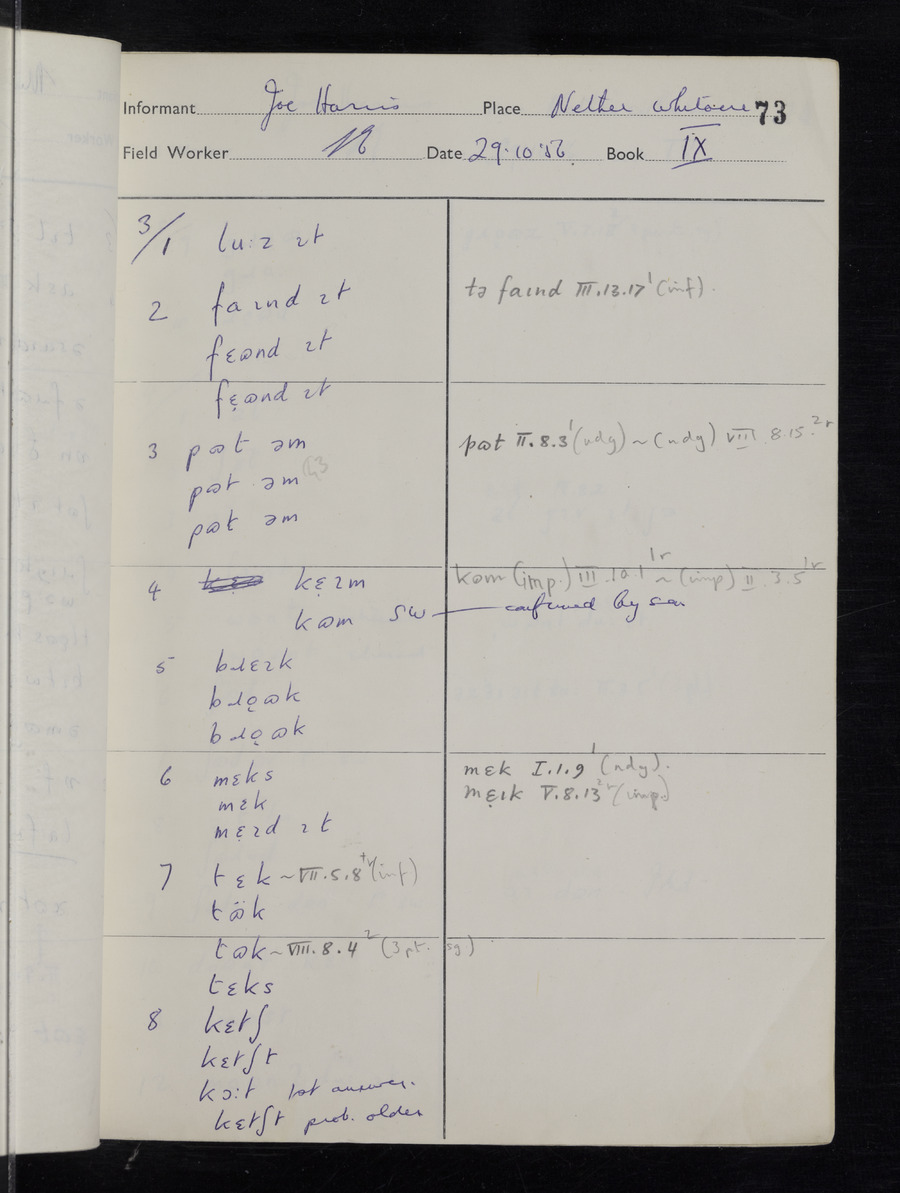 Informant Joe Harris Place Nether Whitacre 73
Field Worker Date 29.10.'56. Book IX
3/1 lu:z ɪt
2 faɪnd ɪt tə faɪnd III.13.17¹ (inf).
fɛɷnd ɪt
fɛ̣ɷnd ɪt
3 pɷt əm pɷt II.8.3¹ (ndg) ~ (ndg) VIII.8.15.²ʳ
pɷt əm
pɷt əm
4 kɛ̣ɪm kɷm (imp.) III.10.1¹ʳ ~ (imp) II.3.5¹ʳ
kɷm SW — confirmed by son
5 bɹɛɪk
bɹọɷk
bɹọɷk
6 mɛks mɛk I.1.9¹ (ndg).
mɛk mɛ̣ɪk V.8.13²ʳ (imp.)
mɛ̣ɪd ɪt
7 tɛk ~ VII.5.8⁺ʳ (inf)
tɷ̈k
tɷk ~ VIII.8.4² (3 pt. sg)
tɛks
8 kɛtʃ
kɛtʃt
kɔ:t 1st answer.
kɛtʃt prob. older